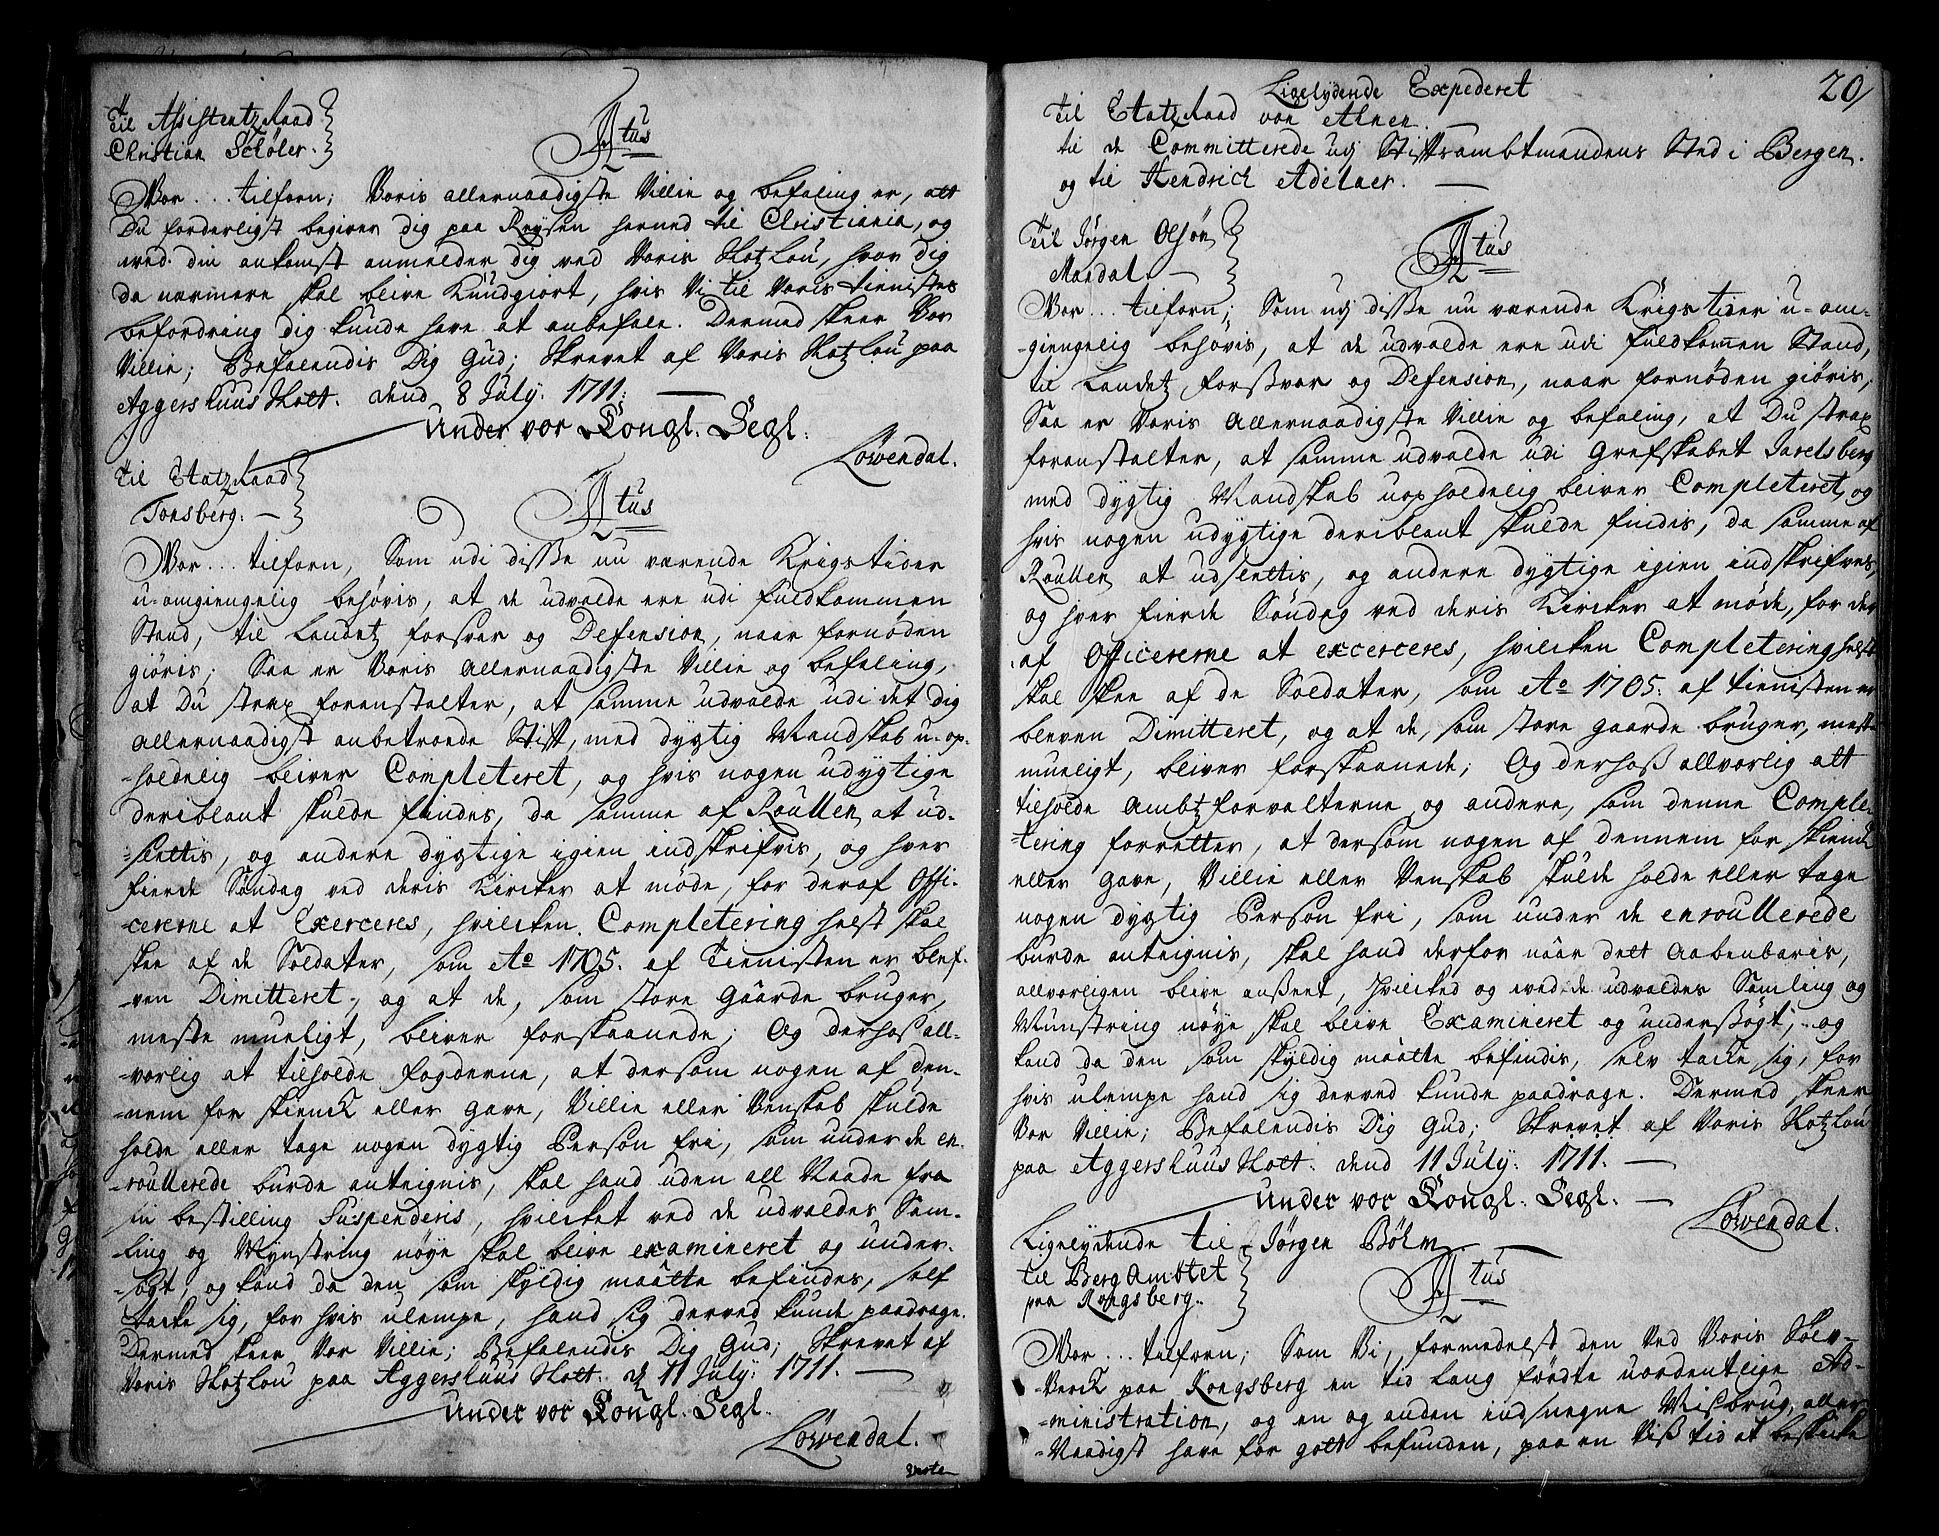 Til Assistentz Raad
Christian Schøler.
Vor... tilforn; Voris allernaadigste Villie og befaling er, att
Du forderligst begiver dig paa Reysen herned til Christiania, og
ved din ankomst anmelder dig ved Voris Slotzlou, hvor dig
da nærmere skal blive Kundgiort, hvis Vi til Voris tienistes
befordring dig kunde have at anbefale. Dermed skeer Vor
Villie; Befalendis Dig Gud; Skrevet af Voris Slotzlou paa
Aggershuus Slott. dend 8 July. 1711.
Under vor Kongl. Segl.
Löwendal.
Til Etatz Raad
Tonsberg.
Vor... tilforn, Som udi disse nu værende Krigstider
u-omgiengelig behøvis, at de udvalde ere udi fuldkommen
Stand, til Landetz forsvar og Defension, naar fornøden
giøris; Saa er Voris Allernaadigste Villie og befaling,
at Du strax foranstalter, at samme udvalde udi det dig
allernaadigst anbetroede Stift, med dygtig Mandskab u-op-
-holdelig bliver Completeret, og hvis nogen udygtige
deriblant skulde findes, da samme af Roullen at ud-
-settis, og andre dygtige igien indskrifvis, og hver
fierde Søndag ved deris Kircker at møde, for deraf Offi-
-cererne at Exerceres, hvilcken Completering helst skal
skee af de Soldater, som Ao 1705. af Tienisten er blef-
-ven Dimitteret, og at de, som store Gaarde bruger,
meste mueligt, bliver forskaanede; Og derhos all-
-vorlig at tilholde fogderne, at dersom nogen af den-
-nem for skienck eller Gave, Villie eller Venskab skulde
holde eller tage nogen dygtig Person fri, som under de en-
-roullerede burde anteignis, skal hand uden all Naade fra
sin bestilling Suspenderis, hvilcket ved de udvaldes Sam-
-ling og Mynstring nøye skal blive examineret og under-
-søgt, og kand da den, som skyldig maatte befindes, self
tacke sig, for hvis ulempe, hand sig derved kunde paadrage.
Dermed skeer Vor Villie; Befalendis Dig Gud; Skrevet af
Voris Slotzlou paa Aggershuus Slott. d 11 July. 1711.
Under vor Kongl. Segl.
Löwendal.
20
Ligelydende Expederet
Til Etatz Raad von Ahnen
til de Committerede udj Stiftsambtmandens Sted i Bergen.
og til Hendrich Adelaer.
Til Jørgen Olsøn
Mandal.
Vor... tilforn; Som udj disse nu værende Krigstider u-om-
-giengelig behøvis, at de udvalde ere udi fuldkommen Stand,
til Landetz forsvar og Defension, naar fornøden giøris,
Saa er Voris Allernaadigste Villie og befaling, at Du strax
foranstalter, at samme udvalde udi Grefskabet Jarelsberg
med dygtig Mandskab uopholdelig bliver Completeret, og
hvis nogen udygtige deriblant skulde findis, da samme af
Roullen at udsettis, og andre dygtige igien indskrifves,
og hver fierde Søndag ved deris Kircker at møde, for der
af Officererne at excerceres, hvilcken Completering helst
skal skee af de Soldater, som Ao 1705. af tienisten er
bleven Dimitteret, og at de, som store gaarde bruger, mest
mueligt, bliver forskaanede; Og derhoß allvorlig att
tilholde Ambtzforvalterne og andre, som denne Comple-
-tering forretter, at dersom nogen af dennem for skienck
eller Gave, Villie eller Venskab skulde holde eller tage
nogen dygtig Person fri, som under de enroullerede
burde anteignis, skal hand derfor naar dett Aabenbaris,
allvorligen blive anseet, Hvilcked og ved de udvaldes Samling og
Munstring nøye skal blive Examineret og undersøgt, og
kand da den som skyldig maatte befindis, selv tacke sig, for
hvis ulempe hand sig derved kunde paadrage. Dermed skeer
Vor Villie; Befalendis Dig Gud; Skrevet af Voris Slotzlou
paa Aggershuus Slott. dend 11 July. 1711.
Under vor Kongl. Segl.
Löwendal.
Ligelydende til Jørgen Bøhm
til Berg Ambtet
paa Kongsberg.
Vor... tilforn; Som Vi, formedelst den Ved Voris Sølv-
-Verck paa Kongsberg en tid lang førdte uordentlige Ad-
-ministration, og en og anden indsnegne Misbrug, aller-
-Naadigst have for gott befunden, paa en Viß tid at beskicke